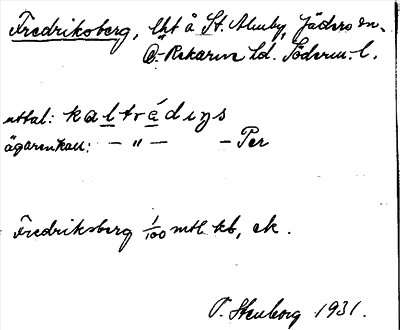 Fredriksberg, lht å St. Åluby, Jäders sn.
Ö.-Rekarne hd. Söderm. l.
uttal: kaltrádiŋs
ägarenkan: — " — — Per
Fredriksberg 1/100 mtl kb, ek.
P. Stenborg 1931.